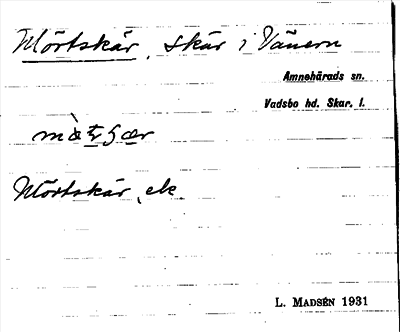 Mörtskär, skär i Vänern
Amnehärads sn.
Vadsbo hd. Skar. l.
Mörtskär, ek
L. MADSÉN 1931